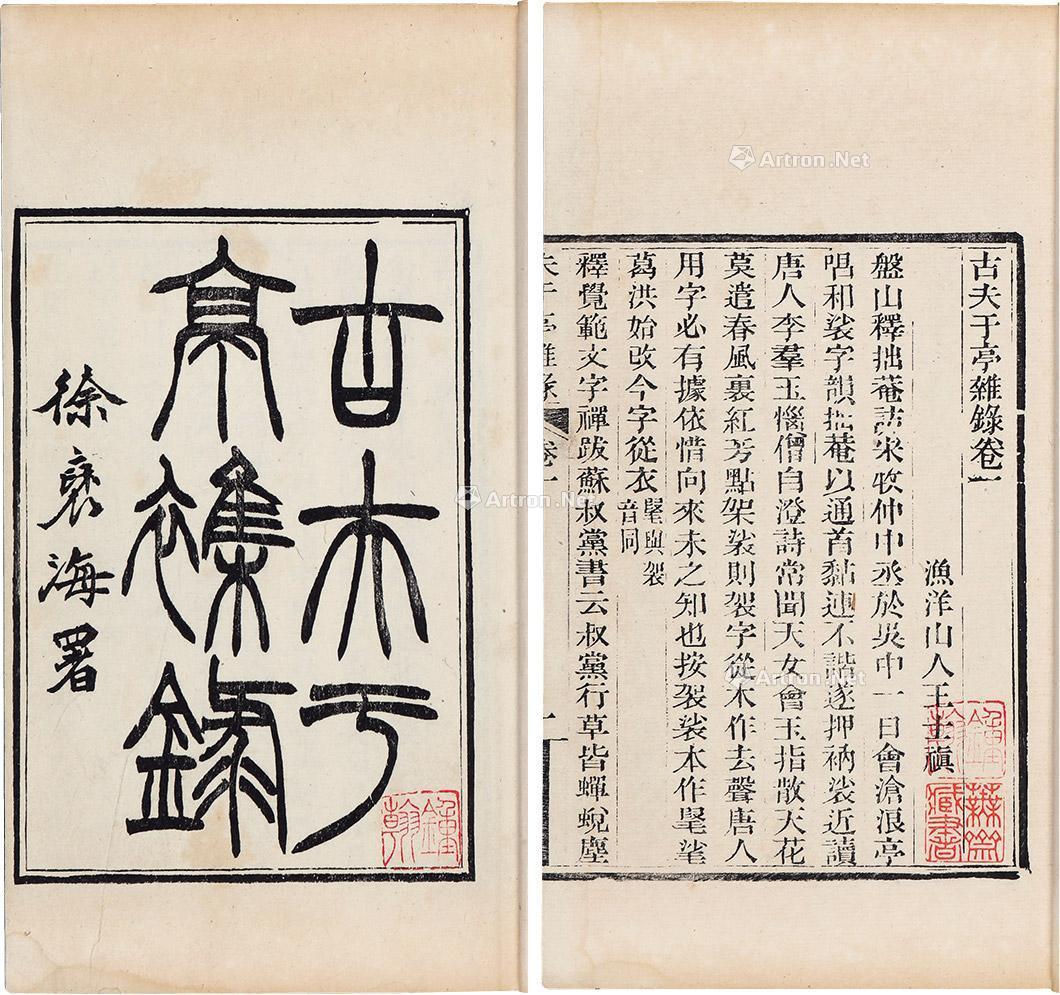 古夫于
亭襍錄
徐襄海署
鍾翰
古夫于亭雜錄卷一
漁洋山人王士禛
盤山釋拙菴訪宋牧仲中丞於吳中一日會滄浪亭
唱和裟字韻拙菴以通首黏連不諧遂押衲裟近讀
唐人李羣玉惱僧自澄詩常聞天女會玉指散天花
莫遣春風裏紅芳點架裟則袈字從木作去聲唐人
用字必有據依惜向來未之知也按袈裟本作毠㲚
葛洪始改今字從衣毠與袈音同
釋覺範文字禪跋蘇叔黨書云叔黨行草皆蟬蛻塵
夫于亭雜錄 卷一 一
鍾翰
藏書
Artron.Net
Artron.Net
Artron.Net